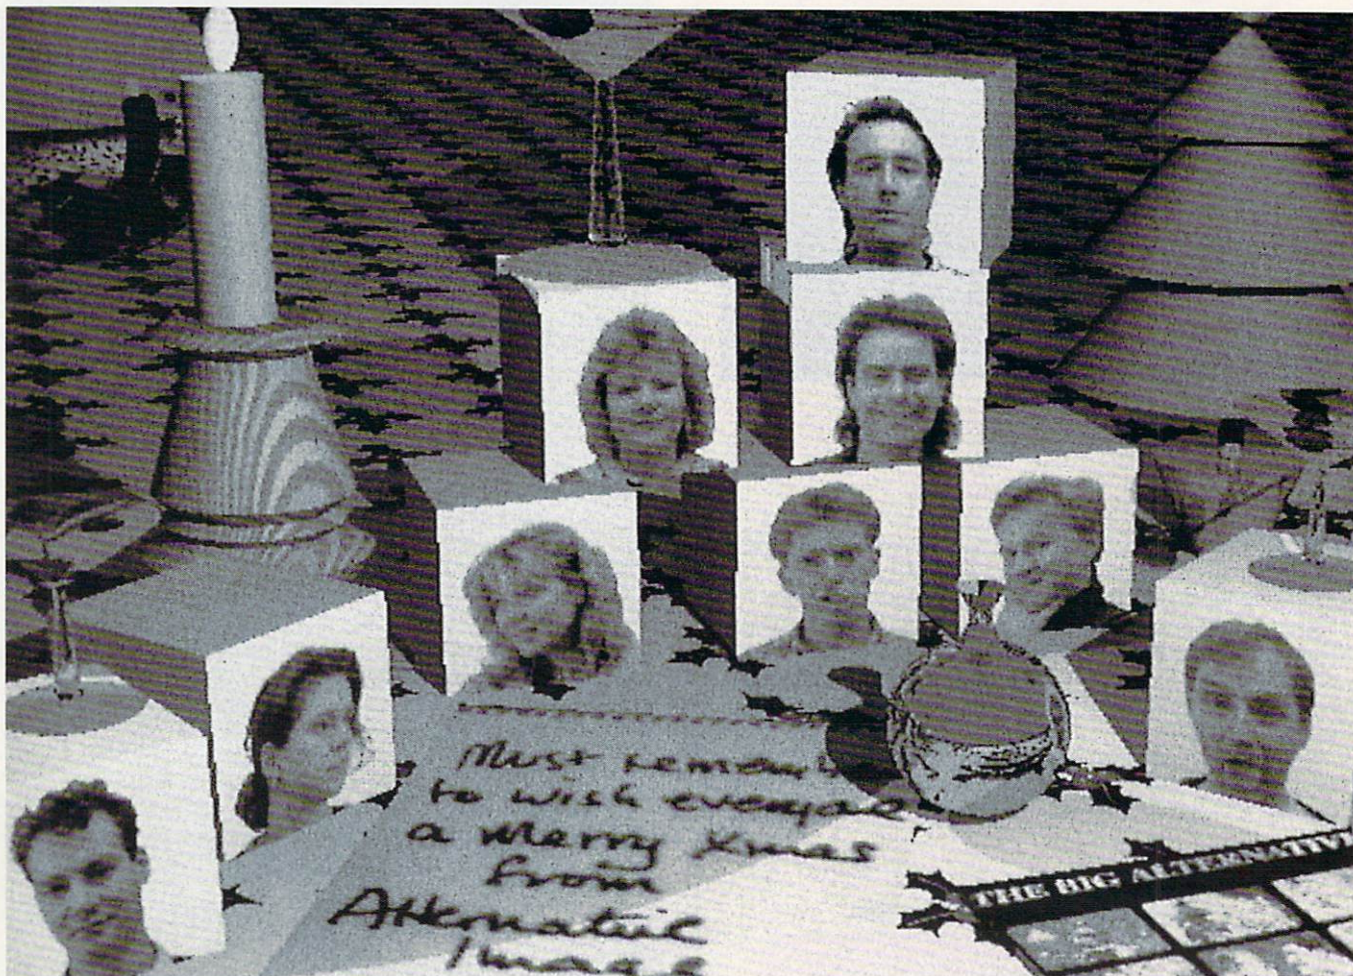 Must remember
to wish everyone
a Merry Xmas
from
Alternative
Image
THE BIG ALTERNATIVE